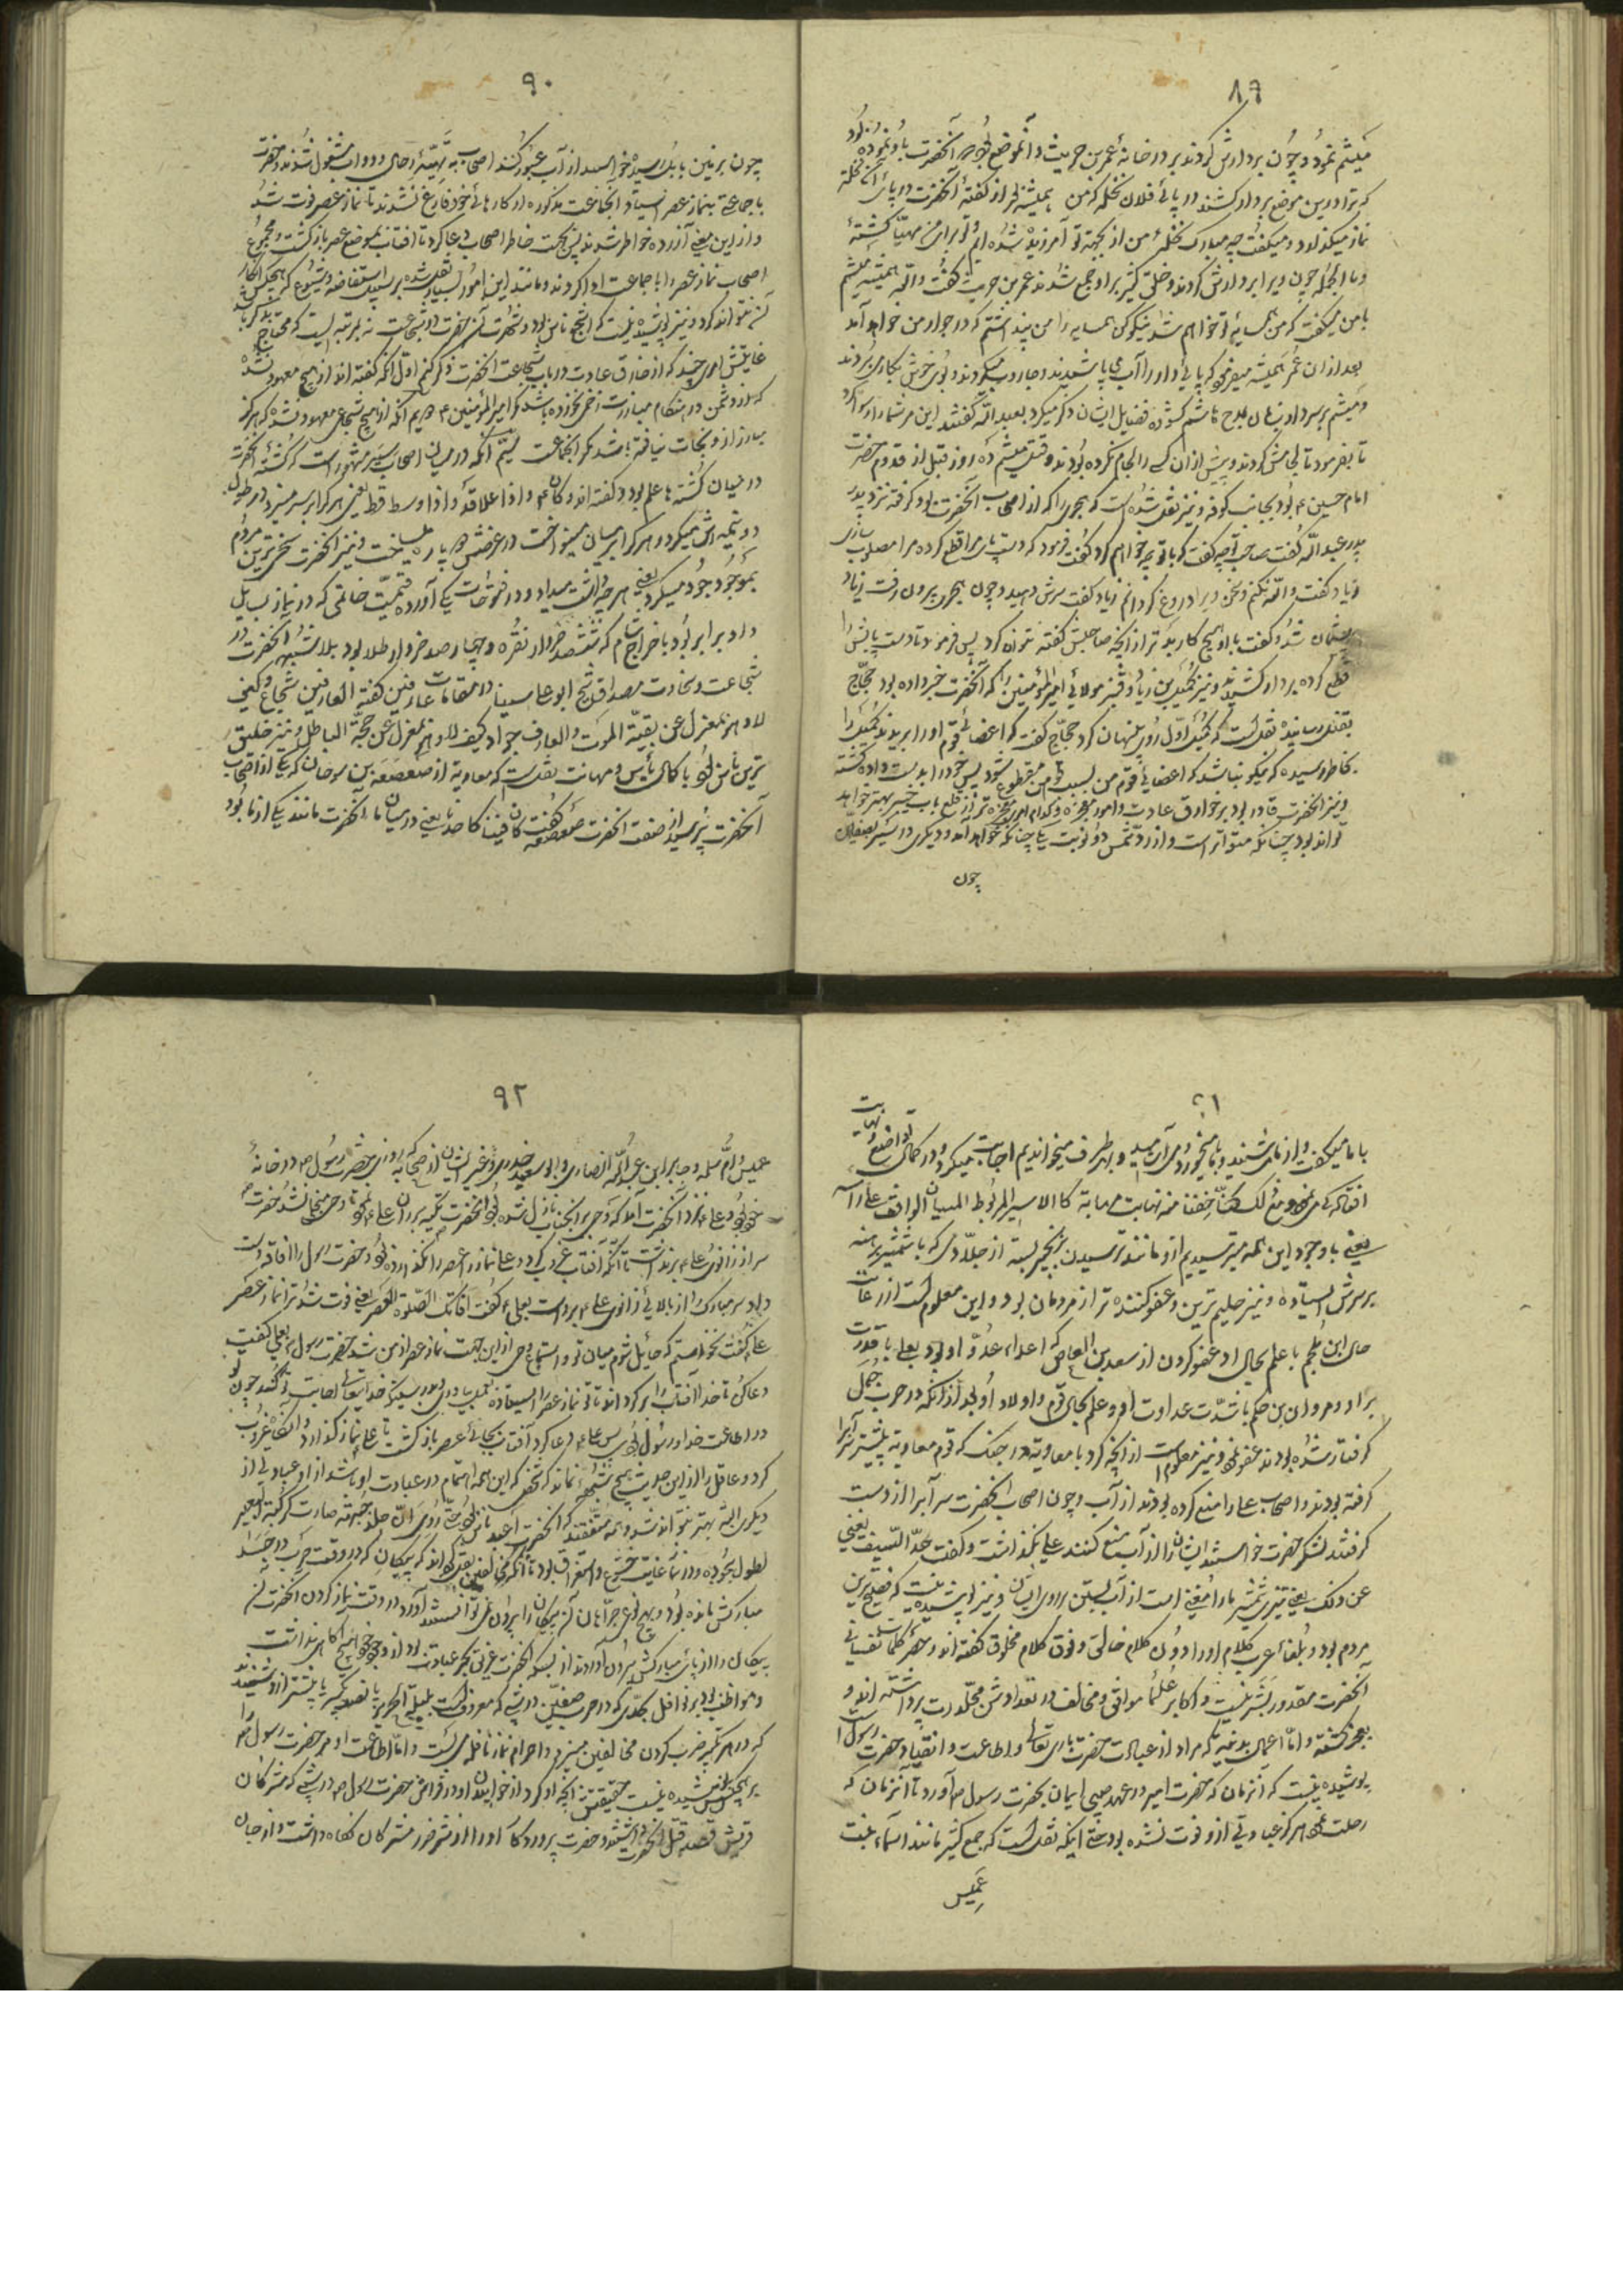 ۸۹
میثم نمود و چون بردارش کردند بر در خانهٔ عمر بن حریث و آنموضع بود که آنحضرت باو نموده بود
که ترا درین موضع بردار کشند در پائی فلان نخله که من همیشه بعد از گفتهٔ آنحضرت در پای آن نخلة
نماز میکذارد و میکفت چه مبارک نخلهٔ من از بجهة تو آفریده شده ام و تو برای من مهیّا گشتهٔ
و بالجمله چون ویرا بردارش کردند و خلق کثیر برا و جمع شدند عمر بن حریث گفت والله همیشه میثم
با من میکفت که من همسایهٔ تو خواهم شد نیکو کن همسایه را من پنداشتم که در جوار من خواهد آمد
بعد از ان عمر همیشه میفرمود که پائی دار را آب می پاشیدند و جاروب میکردند و بوی خوش بکار می بردند
و میثم بر سر دار زبان بمدح هاشم گشوده فضایل ایشان ذکر میکرد بعبید الله گفتند این مرد شما را رسوا کرد
تا بفرمود تا لجامش کردند و پیش از ان کسی را لجام نکرده بودند و قتل میثم ده روز قبل از قدوم حضرت
امام حسین ع بود بجانب کوفه و نیز نقل شده است که هجری را که از اصحاب آنحضرت بود گرفته نزد پدر
پدر عبد الله گفت صاحب تو چه گفت که با تو چه خواهم کرد گفت فرمود که دست پای مرا قطع کرده مرا مصلوب سازی
زیاد گفت والله نکنم و سخن ویرا دروغ گردانم زیاد گفت سرش دهید و چون هجری بیرون رفت زیاد
پشیمان شد و گفت با او هیچ کار بدتر از انچه صاحبش گفته نتوان کرد پس فرمود تا دست پایش را
قطع کرده بردار کشیدند و نیز کمیل بن زیاد و قنبر مولائی امیر المؤمنین را که آنحضرت خبر داده بود حجّاج
بقتل رسانیده نقل است که کمیل اوّل روز پنهان کرد حجاج گفت که اعضائی قوم او را بریدند کمیل را
بخاطر رسیده که نیکو نباشد که اعضائی قوم من بسبب من مقطوع شود پس خود را بدست داده کشته
و نیز آنحضرت قادر بود بر خوارق عادت و امور معجزه و کدام امری معجزه تر از قلع باب خیبر بهتر خواهد
تواند بود چنانکه متواتر است و از رد شمس دو نوبت یکی چنانکه خواهد آمد و دیگری در سیر بصفین
چون
۹۰
چون بر زمین بابل رسید خواستند از آب عبور کنند اصحاب به تهیّهٔ رحال و دواب مشغول شدند و حضرت
با جماعتی بنماز عصر ایستاد و آنجماعت مذکوره از کارهائی خود فارغ نشدند تا نماز عصر فوت شد
و از این معنی آزرده خواطر شدند پس بجهت خاطر اصحاب دعا کرد تا افتاب بموضع عصر بازکشت و مجموع
اصحاب نماز عصر را با جماعت ادا کردند و مانند این امور بسیار نقل شده بر سبیل استفاضه و شیوع که هیچکس انکار
آن نتواند کرد و نیز پوشیده نیست که اشجع ناس بود و شهرت آنحضرت در شجاعت نه بمرتبه ایست که محتاج بذکر باشد
غایتش امری چند که از خارق عادت در باب شجاعت انحضرت ذکر کنم اوّل انکه گفته اند از هیچ معهود نشده
که از دشمن در هنگام مبارزت زخم نخورده باشد مگر امیر المؤمنین ع دویم انکه از هیچ شجاعی معهود نشده که هرکز
مبارز از و نجات نیافته باشد مگر انجماعت سیّم آنکه در میان اصحاب سیر مشهور است که کشتهٔ انحضرت
در میان کشته ها علم بود و گفته اند و کان ع اذا علا قدّ و اذا وسط قط یعنی هر کرا بر سر میزد در طول
دو نیمه اش میکرد و هر کرا بر میان مینواخت در عرضش دو پاره میساخت و نیز انحضرت سخی ترین مردم
بموجود جود میکرد یعنی هر چه داشت میداد و در فتوحات مکی آورده قمیّت خاتمی که در نیاز بسایل
داد برابر بود با خراج شام که ششصد خروار نقره و چهار صد خروار طلا بود بلا شبهه انحضرت در
شجاعت و سخاوت مصداق شیخ ابو علی سینا در مقامات عارفین گفته العارفین شجاع و کیف
لا و هو بمعزل عن بقیّة الموت و العارف جواد و کیف لا و هو بمعزل عن محبّة الباطل و نیز خلیق
ترین ناس بود با کمال بأس و مهابت نقل است که معاویة از صعصعه بن صوحان که یکی از اصحاب
آنحضرت پرسید از صفت انحضرت صعصعه گفت کان فینا کاحدنا یعنی در میان ما آنحضرت مانند یکی از ما بود
۹۱
با ما میکفت و از ما میشنید و با ما میخورد و می آشامید و بهر طرف میخواندیم اجابت میکرد و در کمال تواضع
و مع ذلک کنّا خفنا منه نهایت مهابة کالاسیر المربوط للسیاف الواقف علی رأسه
یعنی با وجود این همه میترسیدیم ازو مانند ترسیدن بزنجیر بسته از جلّادی که با شمشیر برهنه
بر سرش ایستاده و نیز حلیم ترین و عفو کننده تر از مردمان بود و این معلوم است از رعایت
حال ابن ملجم با علم بحال او و عفو کردن از سعید بن العاص که اعداء عدوّ او بود بعلی با قدرت
بر او و مروان بن حکم با شدّت عداوت او و علم بحال قوم و اولاد او بعد از آنکه در حرب جمل
گرفتار شده بودند عفو نمود و نیز معلوم است از انچه کرد با معاویة در جنک که قوم معاویة پیشتر سر آبرا
گرفته بودند و اصحاب علی را منع کرده بودند از آب و چون اصحاب انحضرت سر آبرا از دست
گرفتند لشکر حضرت خواستند ایشان را از آب منع کنند علی نگذاشت و گفت حدّ السّیف یعنی
عن ذلک یعنی تیزی شمشیر ما را مغنی است از آب بستن بر روی ایشان و نیز پوشیده نیست که فصیح ترین
مردم بود و بلغائی عرب کلام او را دون کلام خالق و فوق کلام مخلوق گفته اند و حصر کمالات نفسانی
انحضرت مقدور بشر نیست و اکابر علما موافق و مخالف در تعدادش مجلّدات پرداخته اند و
بعجز گشته و امّا اعمال بدنیه که مراد از عبادت حضرت باری تعالی و اطاعت و انقیاد حضرت رسول
پوشیده نیست که انزمان که حضرت امیر در عهد صبی ایمان بحضرت رسول ص آورد تا آنزمان که
رحلت نمود هرکز عبادتی از و فوت نشده بود حتی اینکه نقل است که جمع کثیر مانند اسماء بنت
عمیس
۹۲
عمیس و امّ سلمه و جابر ابن عبد الله انصاری و ابو سعید خدری و غیر ایشان از صحابه که روزی حضرت رسول ص در خانهٔ
خود بود و علی ع نزد آنحضرت آمد که وحی بر انجناب نازل شده بود انحضرت تکیه بر ران علی ع نمود تا وحی منجلی نشد حضرت ص
سر از زانوی علی ع بر نداشت تا آنکه آفتاب غروب کرد و علی نماز عصر را نگذارده بود و حضرت رسول را افاقه دست
داد و سر مبارک را از بالائی زانوی علی ع برداشت بعلی ع گفت افاتتک الصّلوة العصر یعنی فوت شد ترا نماز عصر
علی گفت نخواستم که حایل شوم میان تو و استماع وحی ازاین جهت نماز عصر از من شد حضرت رسول بعلی گفت
دعا کن تا خدا آفتاب را بر کرداند تا تو نماز عصر را ایستاده
در اطاعت خدا و رسول بود پس علی دعا کرد آفتاب بجائی عصر بازکشت تا علی نماز گذارد و آنگاه غروب
کرد و عاقل را از این حدیث هیچ شبهه نماند که شخصی که این همه اهتمام در عبادت او باشد از او عبادتی از
دیگری البتّه بهتر نتواند شد و همه متّفقند که انحضرت اعبد ناس بود حتّی روی ان جبهته صارت کرکبة البعیر
لطول سجوده و در نماز غایت خشوع و استغراق بود تا آنکه مخالفین نقل کرده اند که پیکان که در وقت حرب در جسد
مبارکش مانده بود و بهیچ نوع جرّاحان آن پیکان را بیرون نمی توانستند آورد در وقت نماز کردن آنحضرت آن
پیکان را از پائی مبارکش بیرون آوردند از بسکه انحضرت غرق بحر عبادت بود از وجود خود هیچ آگاهی نداشت
و مواظب بود بر نوافل بحدّی که در حرب صفیّن در شبی که معروف است بلیلة الهریر پانصد تکبیر یا بیشتر از و شنیدند
که در هر تکبیر ضرب کردن مخالفین میزد و احرام نماز نافله می بست و امّا اطاعت او مر حضرت رسول ص را
بر هیچکس پوشیده نیست حقیقتش انچه او کرد از خوابیدن او در فراش حضرت رسول ص در شبی که مشرکان
قریش قصد قتل انحضرت داشتند و حضرت پروردکار او را از شر ضرر مشرکان نگاه داشت و از جان